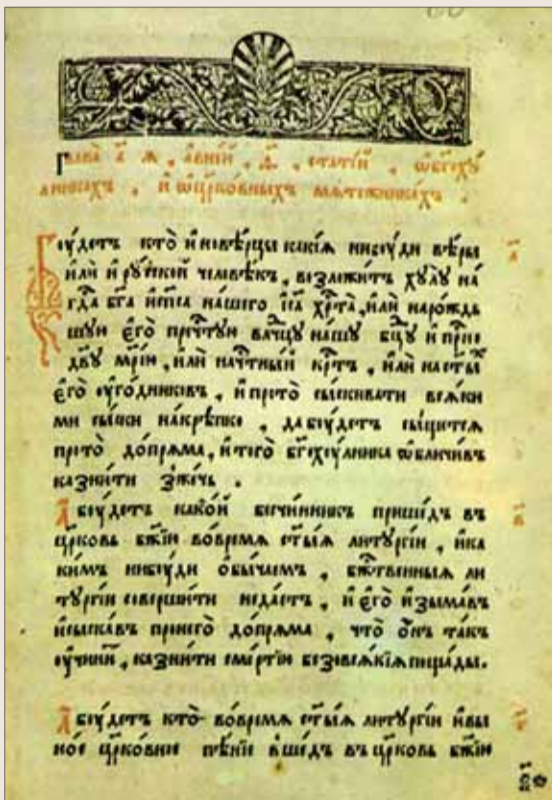 Глава̀ а҃ ѧ , а вне́й , ѳ҃ , стате́й , ѡ бг҃охꙋ́
лникахъ , и ѡ цр҃ко́вныхъ мѧте́жникахъ .
Боу́детъ кто̀ и҆новѣ́рцы какі́ѧ нибоу́ди вѣ́ры
и҆лѝ и҆ рꙋ́ской человѣ́къ , возложи́тъ хꙋлꙋ̀ на́
гдⷭ҇а бг҃а и҆сп҃са на́шего і҆с҃а хрⷭ҇та̀ , и҆лѝ наро́ждь
шꙋю є҆го̀ прчⷭ҇тꙋю влⷣчцꙋ на́шꙋ бцⷣꙋ и҆ прⷭ҇но
дв҃ꙋ мр҃і́ю , и҆лѝ начⷭ҇тны́й крⷭ҇тъ , и҆лѝ наст҃ы́ⷯ
є҆го̀ оу҆го́дниковъ , и҆ прото̀ сы́скивати всѧ́ки
ми сы́ски на́крѣпко , да боу́детъ сы́щетсѧ
прото̀ до́прѧма , и҆ того̀ бг҃охоу́лника ѡбличи́въ
казни́ти зже́чь .
А боу́детъ како́й безчи́нникъ прише́дъ въ
цр҃ковь бж҃їю во́времѧ ст҃ы́ѧ литꙋргі́и , и҆ка
ки́мъ нибоу́ди о҆бы́чаемъ , бжⷭ҇твенныѧ ли
тꙋргі́и соверши́ти неда́стъ , и҆ є҆го̀ и҆зыма́въ
и҆сыска́въ пронего̀ до́прѧма , что̀ о҆нъ та́къ
оу҆чини́тъ , казни́ти сме́ртїю безовсѧ́кїѧ поща́ды .
А боу́детъ кто̀ во́времѧ ст҃ы́ѧ литꙋргі́и и҆вы
но́е цр҃ко́вное пѣ́нїе вше́дъ въ цр҃ковь бж҃їю